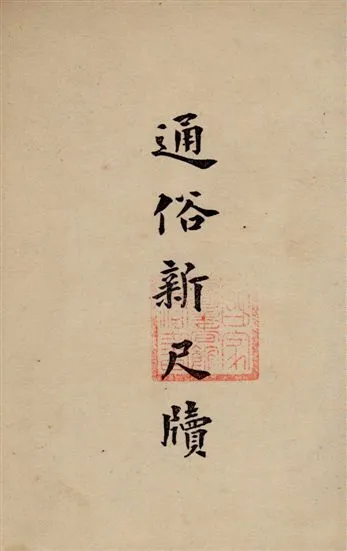 通俗新尺牘